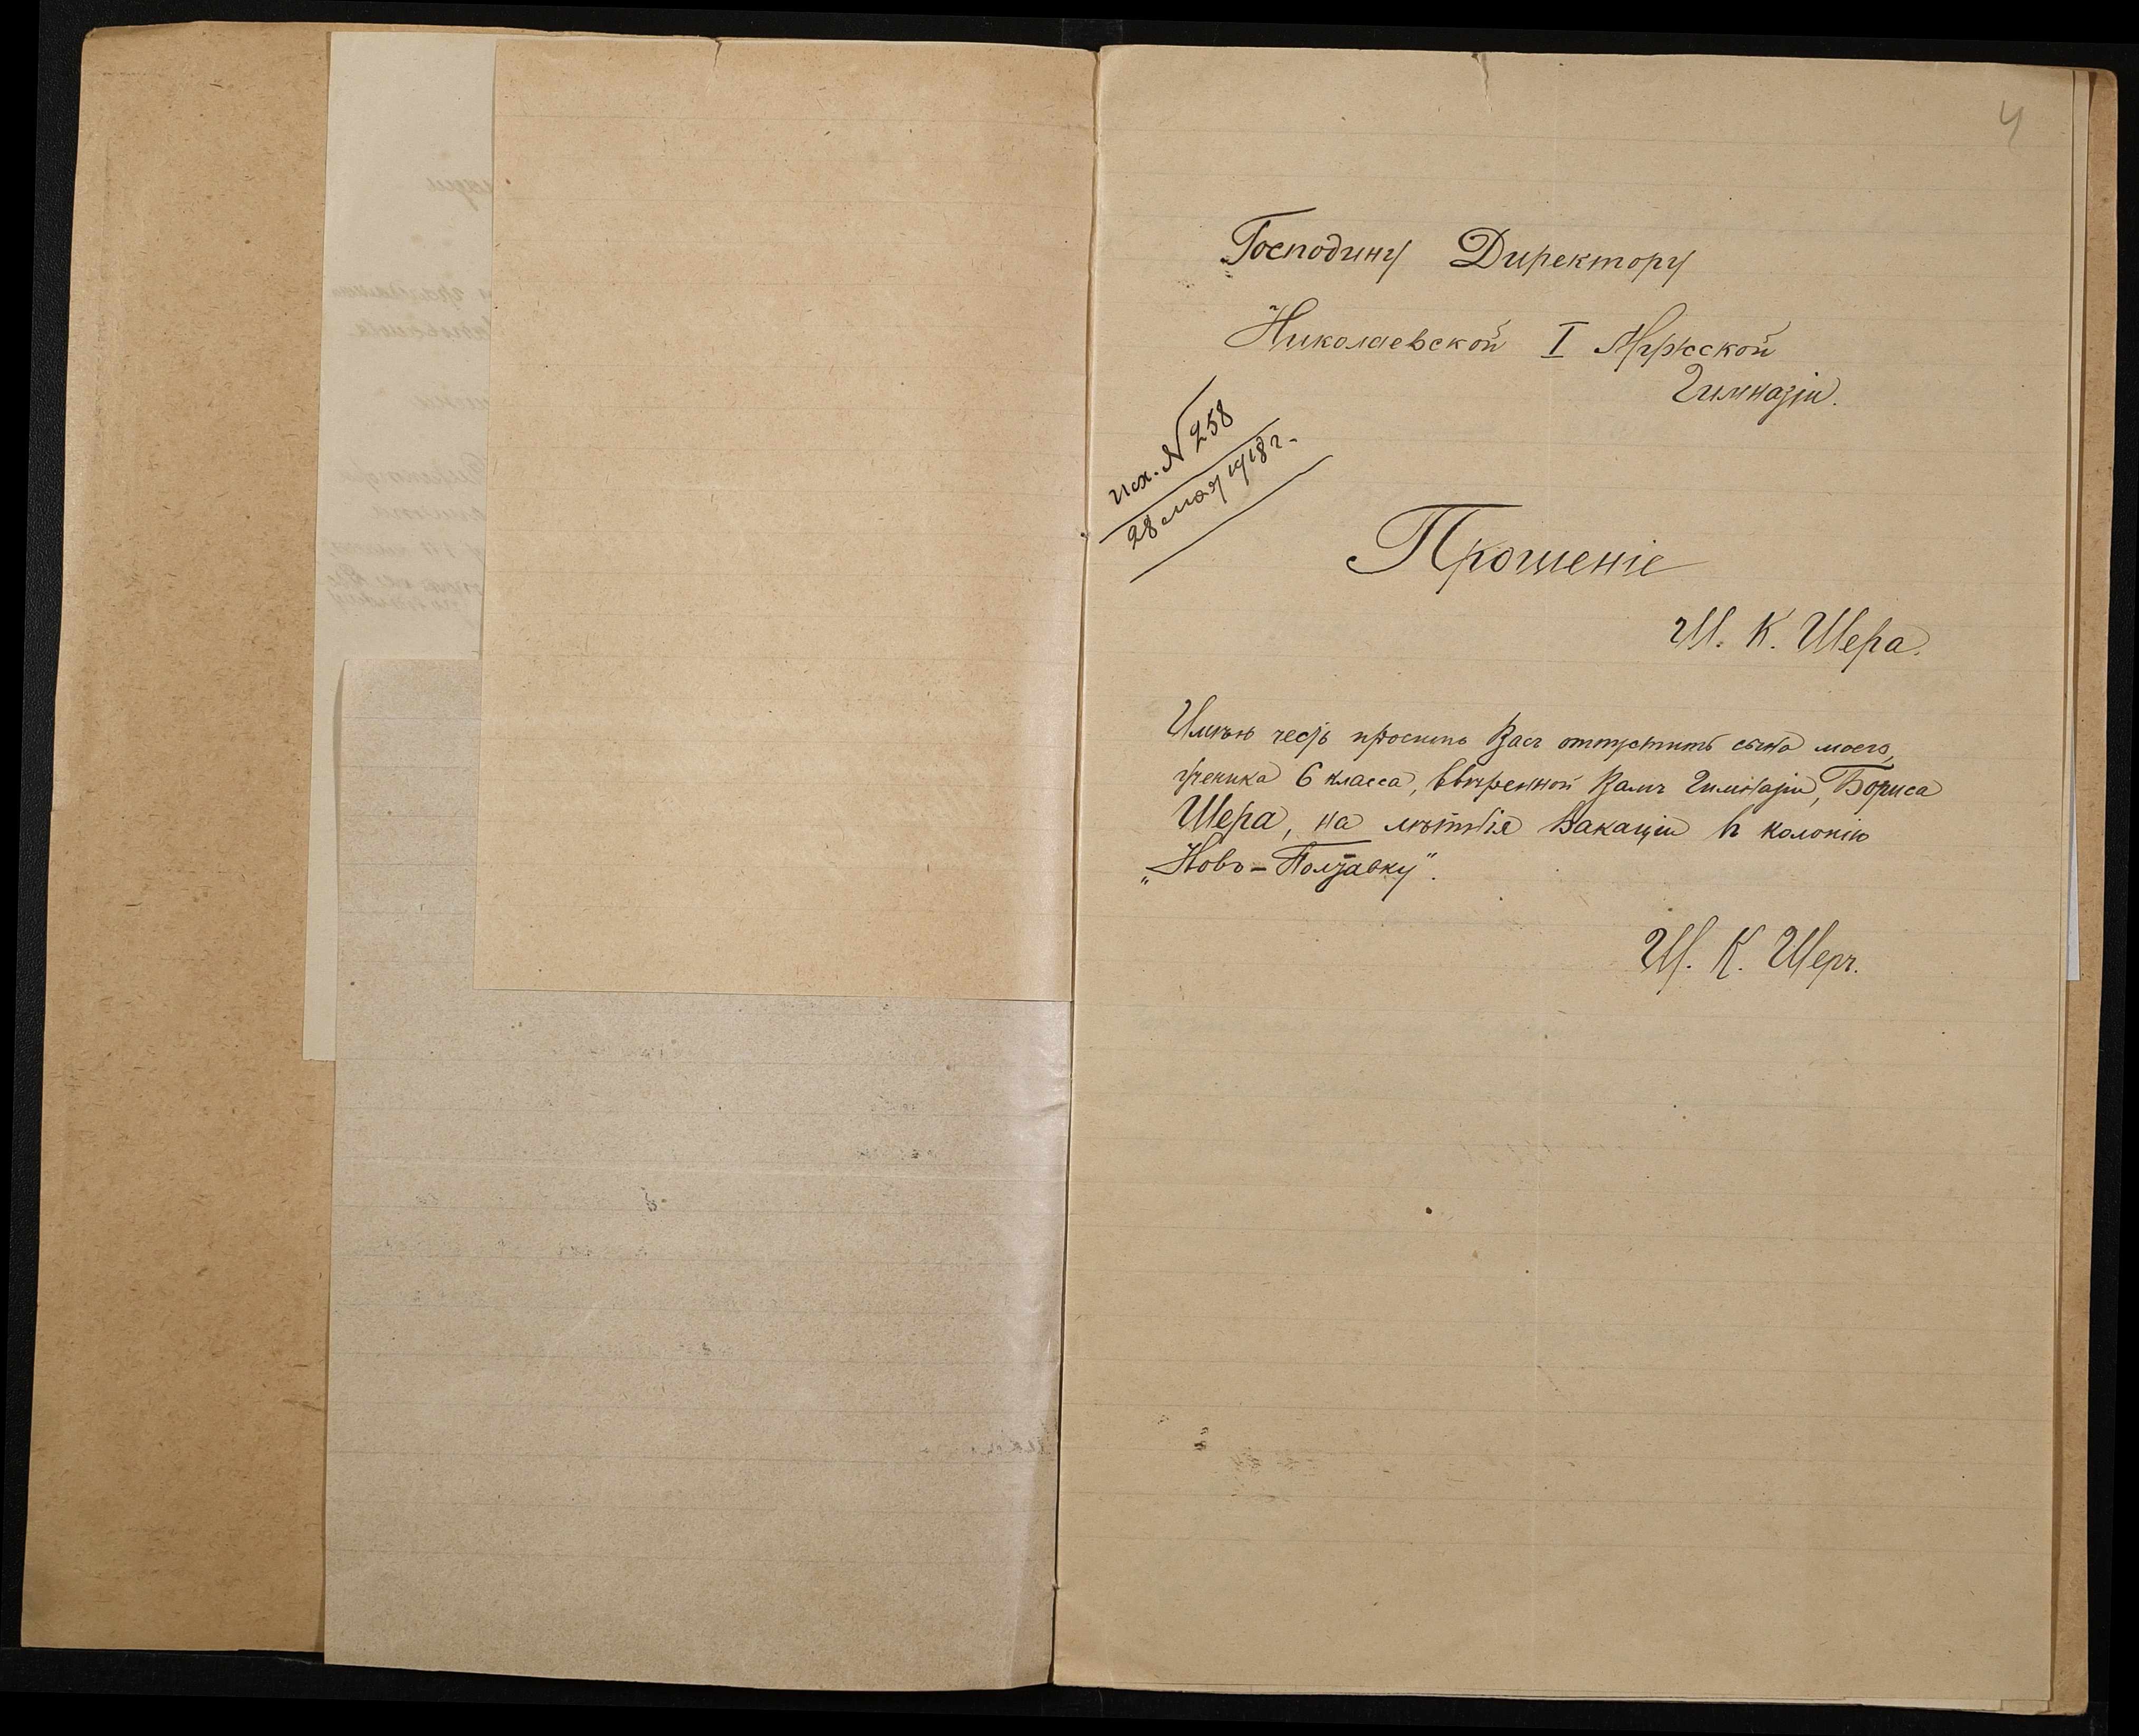 4
Господину Директору
Николаевской I Мужской
Гимназіи.
исх. N 258
28 мая 1918 г.
Прошеніе
Ш. К. Шера.
Имѣю честь просить Васъ отпустить сына моего,
ученика 6 класса, ввѣренной Вамъ Гимназіи, Бориса
Шера, на лѣтнія вакаціи въ колонію
„Ново-Полтавку".
Ш. К. Шеръ.